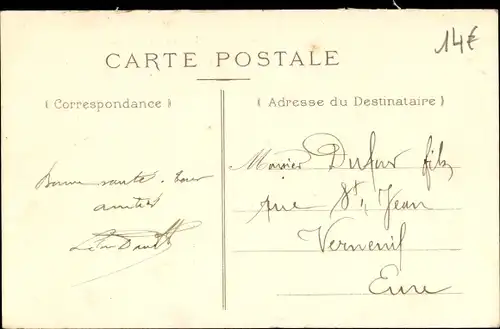 14€
CARTE POSTALE
(Correspondance)
(Adresse du Destinataire)
Bonne santé.
amitiés
Dufour fils
rue St Jean
Verneuil
Eure